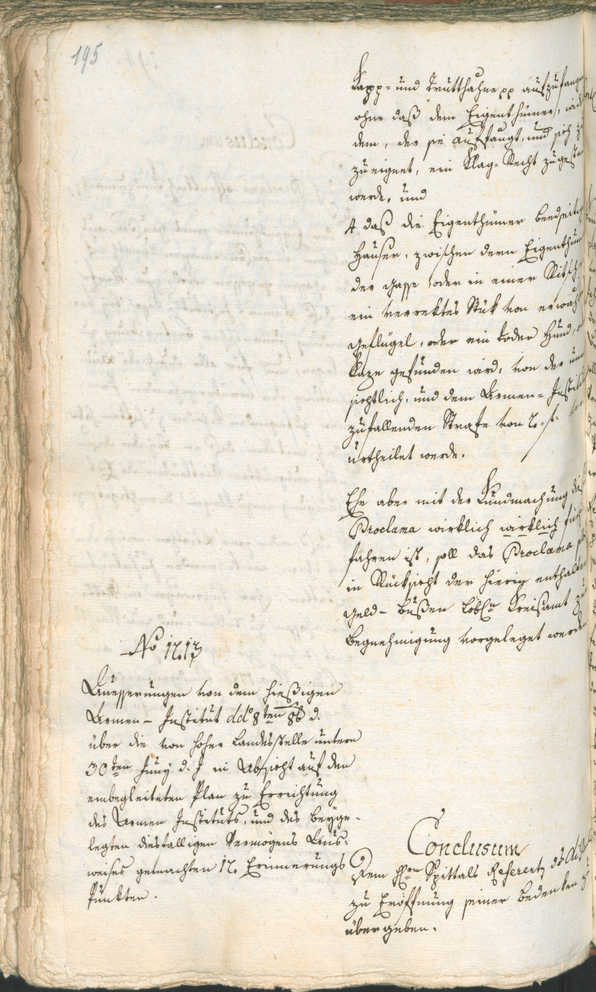 195
Kapp- und Trutthahne pp aufzufangen
ohne daß dem Eigenthümer,
dem, der sie auffangt, und sich
zueignet, ein Klag-Recht
werde, und
4. daß die Eigenthümer beedseitiger
Häuser, zwischen denen
der Gasse oder in einer
ein verrektes Stük von
Geflügel, oder ein toder Hund,
Kaze gefunden wird, von der
und dem Armen-Institut
zufallenden Strafe von 2 f.
urtheilet werde.
Ehe aber mit der Kundmachung des
Proclama wirklich wirklich
fahren ist, soll das Proclama
in Rüksicht der hierin enthaltenen
Geld-Bußen löbl. Kreisamt zu
Begnehmigung vorgeleget werden
No 1217
Aeusserungen von dem hießigen
Armen-Institut ddo 8ten 8b d.
über die von hoher Landesstelle unterm
30ten Juny d. J. in Absicht auf den
einbegleiteten Plan zu Errichtung
des Armen Instituts, und des beyge-
legten diesfälligen Vermögens Aus-
weises gemachten 12 Erinnerungs
Punkten.
Conclusum
Dem Hrn Spittall Referenten
zu Eröffnung seiner Bedenken
übergeben.